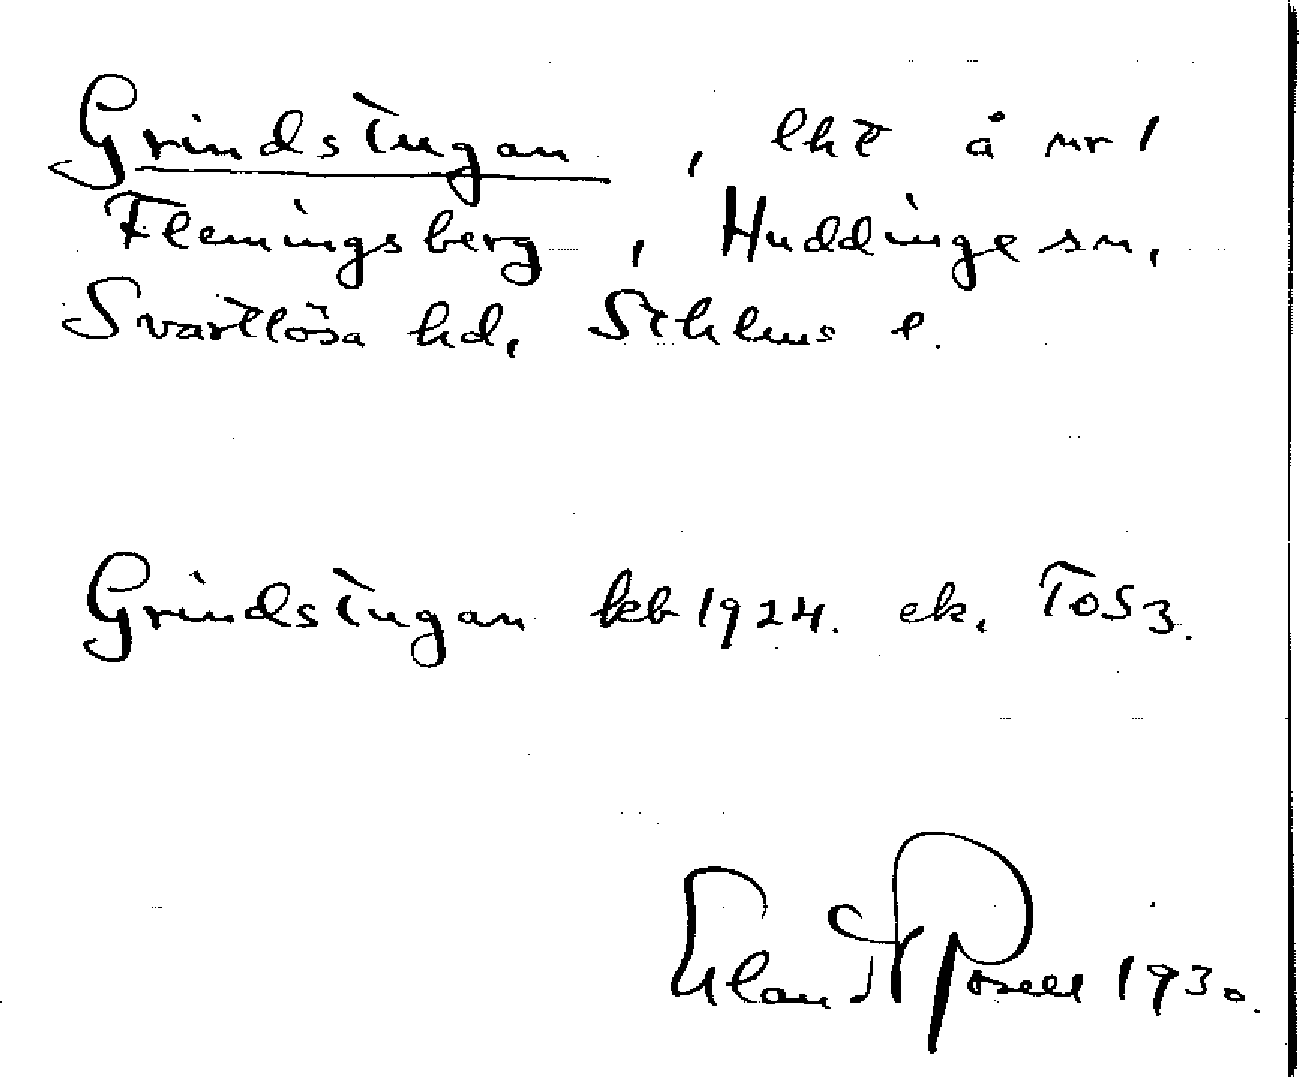 Grindstugan, lht å nr 1
Flemingsberg, Huddinge sn,
Svartlösa hd, Sthlms l.
Grindstugan kkb 1924. ek. ToS3.
1930.